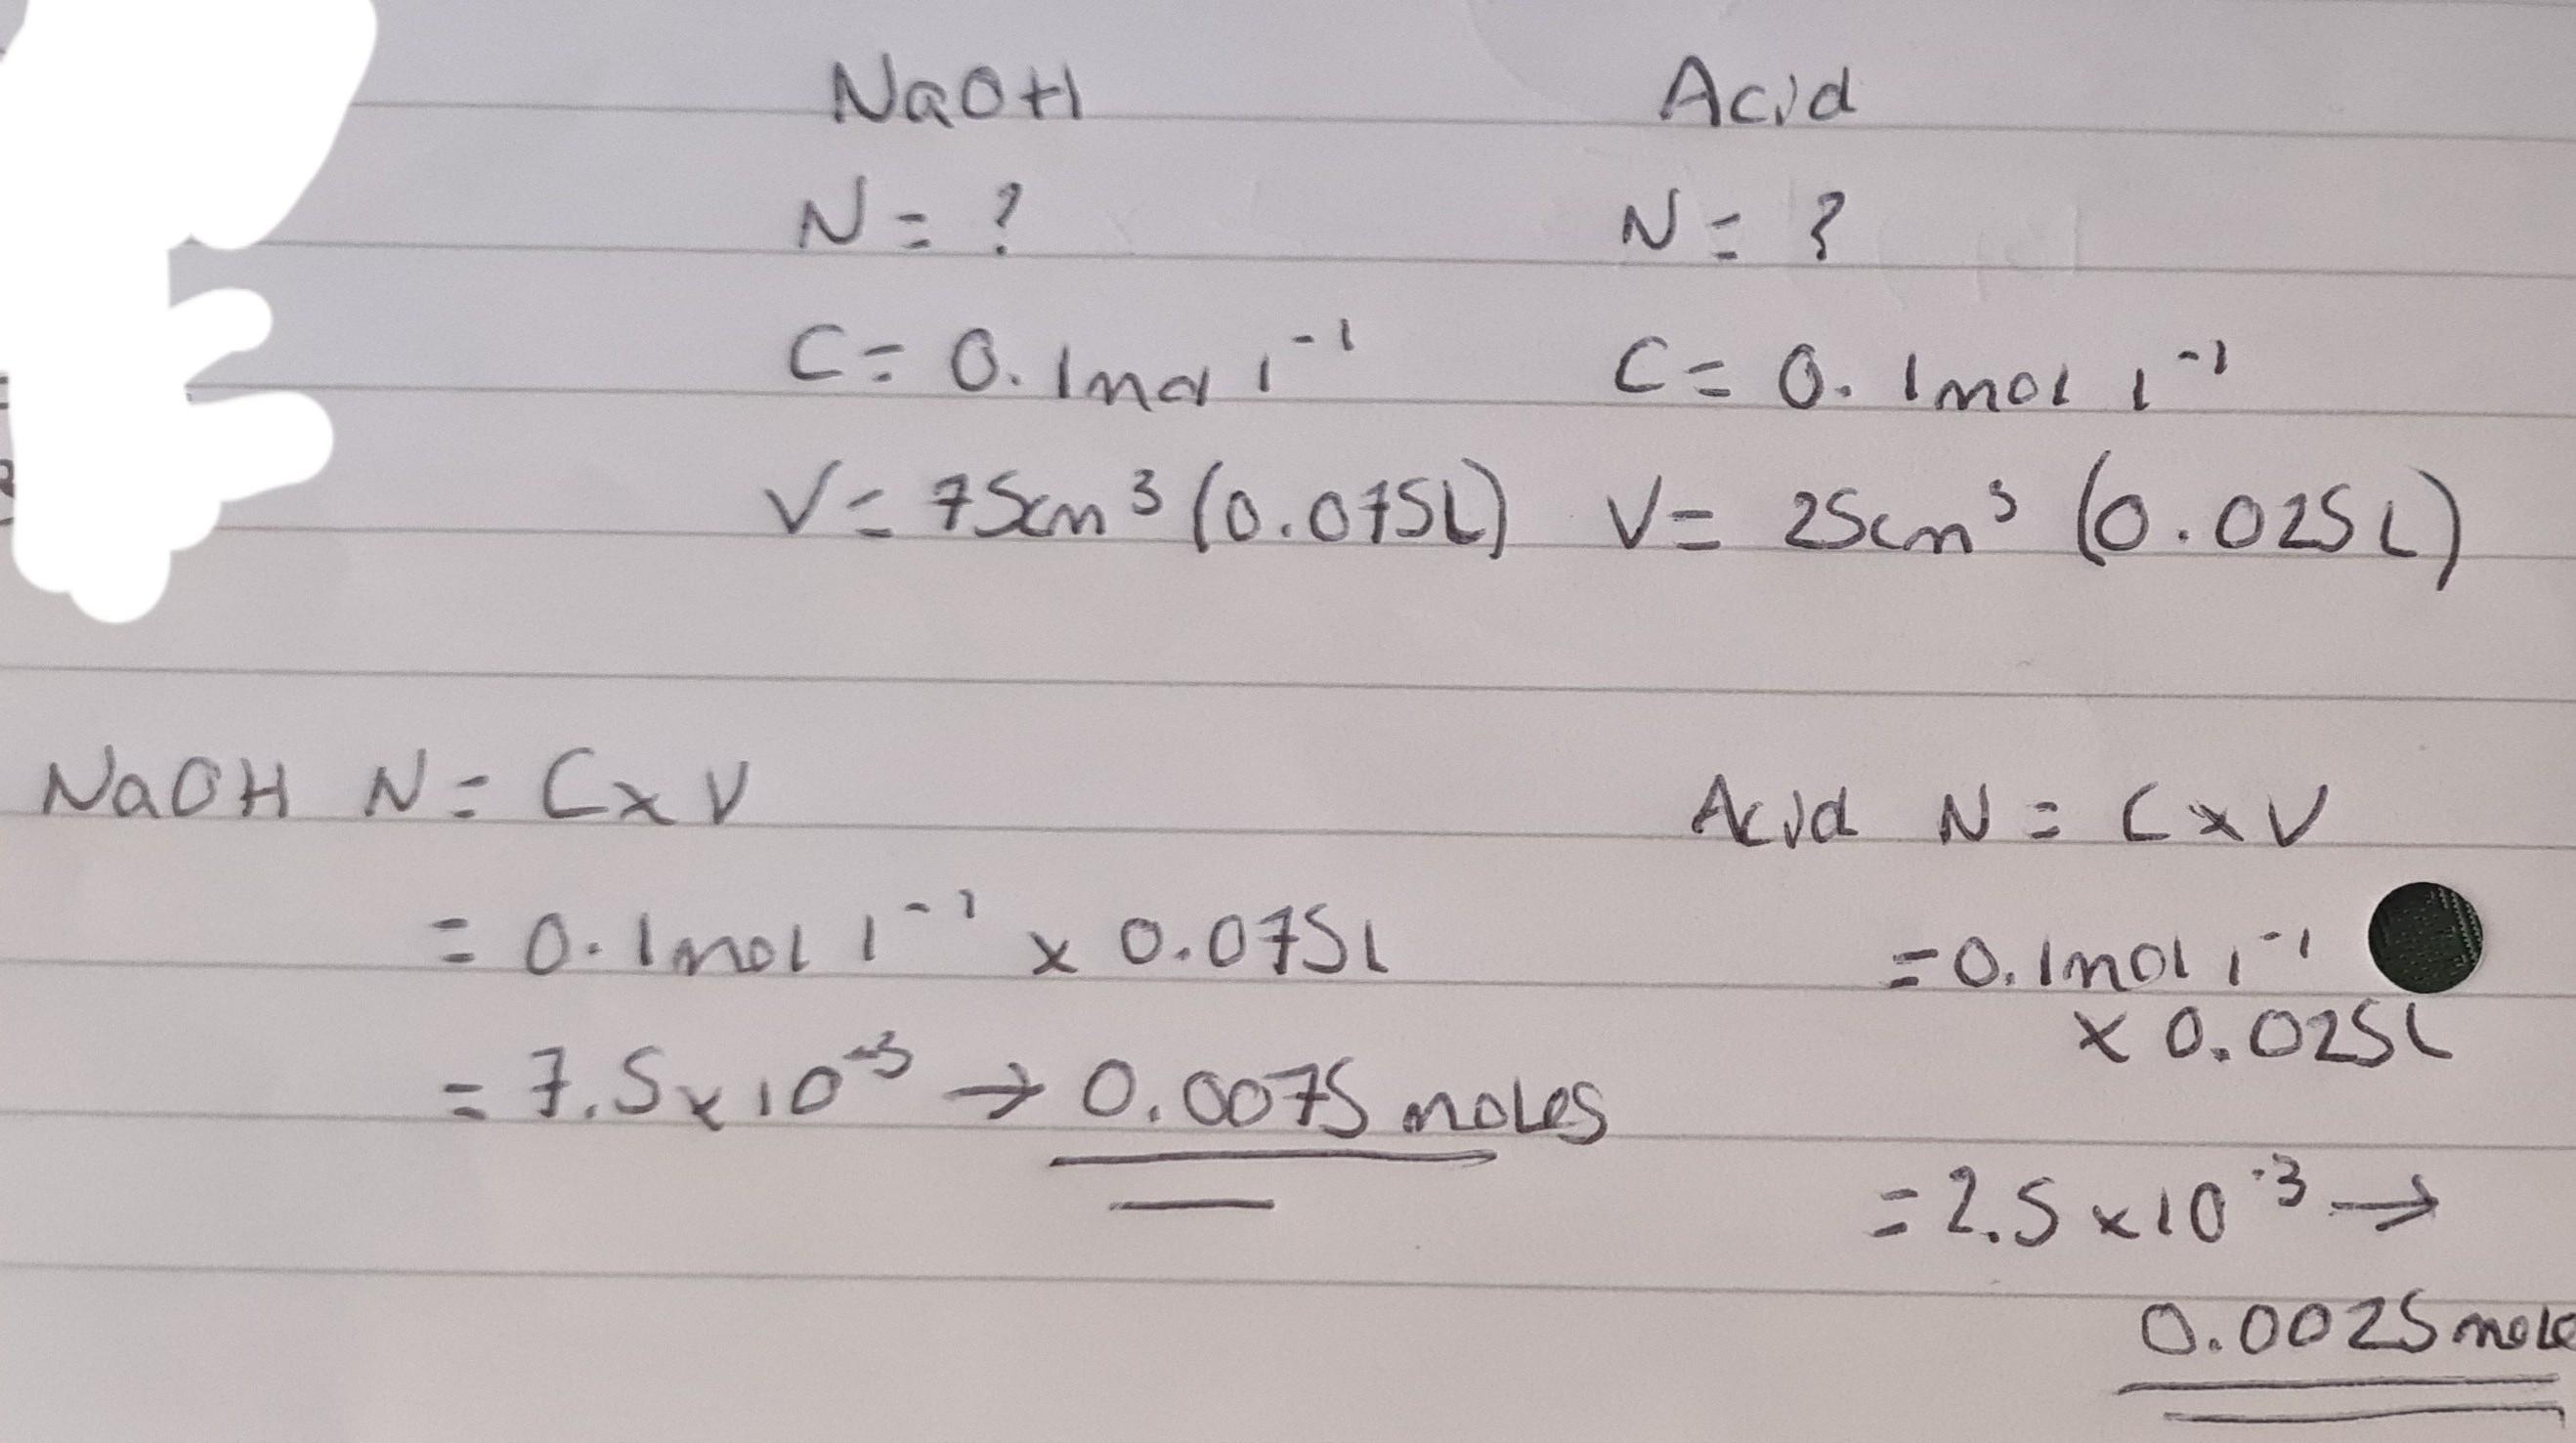 NaOH Acid
N = ? N = ?
C = 0.1mol l⁻¹ C = 0.1mol l⁻¹
V = 75cm³ (0.075L) V = 25cm³ (0.025L)
NaOH N = C x V Acid N = C x V
= 0.1mol l⁻¹ x 0.075L = 0.1mol l⁻¹
x 0.025L
= 7.5 x 10⁻³ → 0.0075 moles
= 2.5 x 10⁻³ →
0.0025 mole